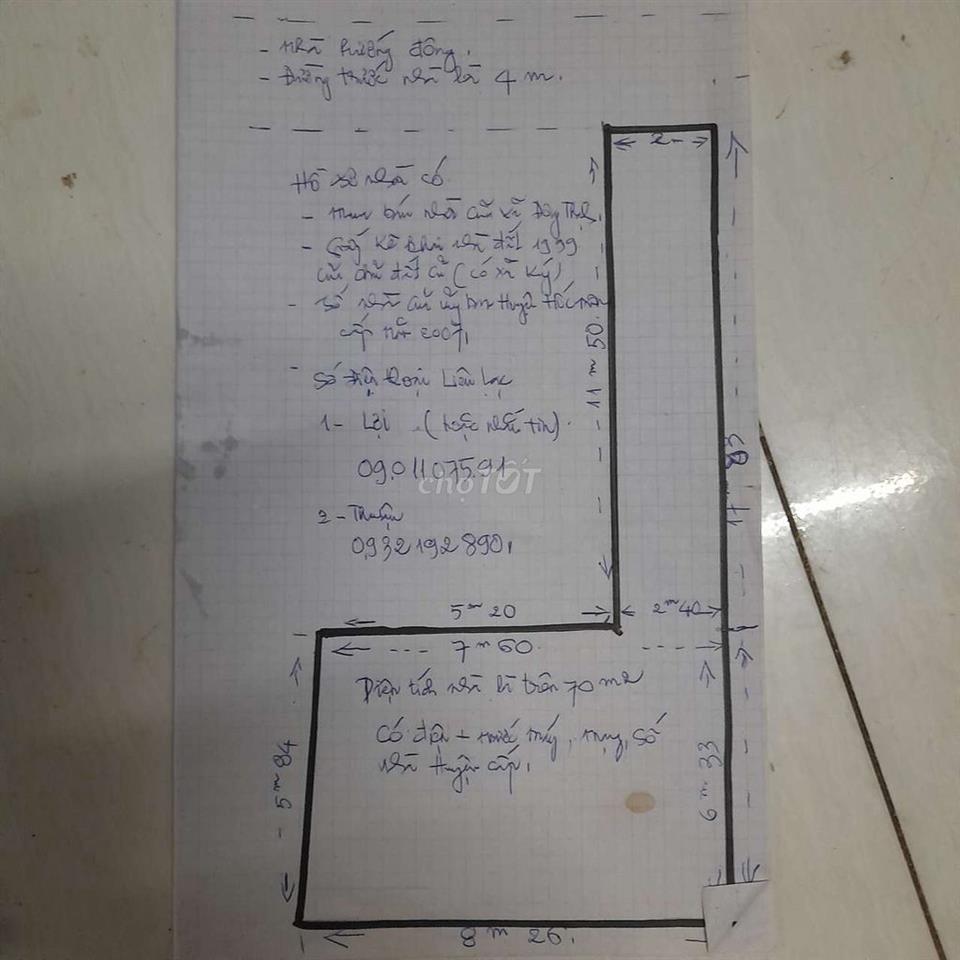 - Nhà hướng đông.
- Đường trước nhà là 4 m.
2m
Hồ sơ nhà có
- mua bán nhà của xã Đông Thạnh.
- Giấy kê khai nhà đất 1999
của chủ đất cũ (có xã ký)
- số nhà của Huyện Hóc môn
cấp 2007.
- Số điện thoại Liên lạc
1- Lợi (hoặc nhắn tin).
09.01107591
chợTỐT
2- Thuận
0932192890.
11 m 50
17 83
5 m 20
2 m 40
7 m 60
Diện tích nhà là trên 70 m2
Có điện + nước máy, mạng, số
nhà Huyện cấp.
5 m 84
6 m 33
8 m 26.